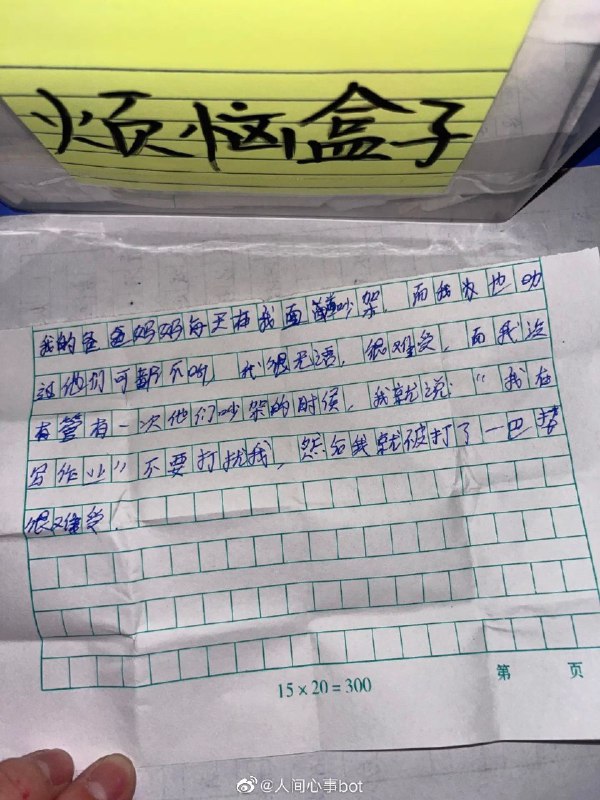 烦恼盒子
我的爸爸妈妈每天在我面前吵架，而我也劝
过他们可都不听，我很无语，很难受，而我没
有管有一次他们吵架的时侯，我就说“我在
写作业”不要打扰我，然后我就被打了一巴掌
很难受.
15×20=300
第 页
@人间心事bot